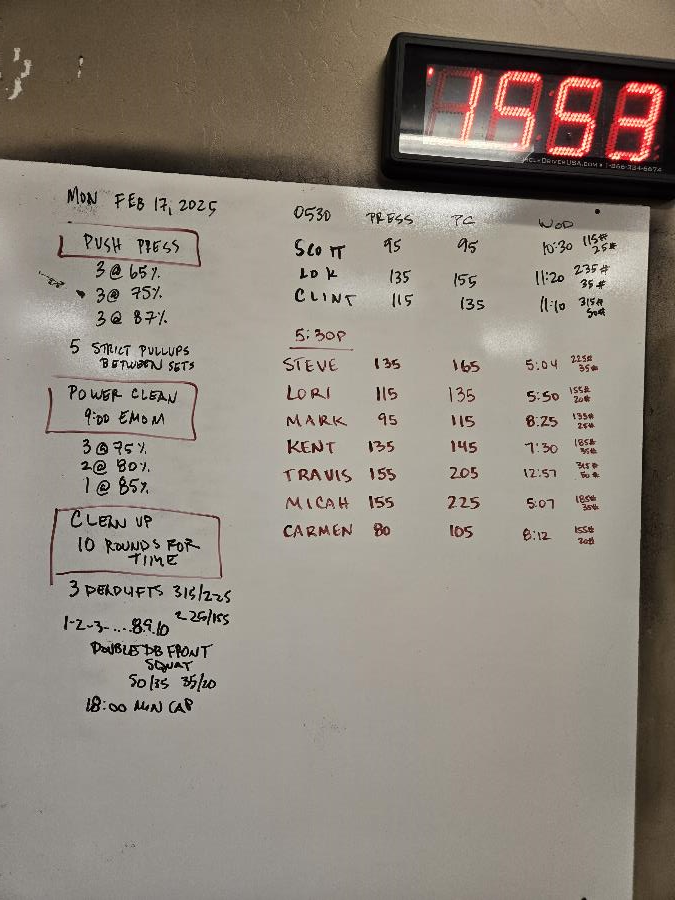 1553
1-866-334-6674
MON FEB 17, 2025
PUSH PRESS
3 @ 65%
3@ 75%
3 @ 87%
5 STRICT PULLUPS
BETWEEN SETS
POWER CLEAN
9:00 EMOM
3 @ 75%
2@ 80%
1 @ 85%
CLEAN UP
10 ROUNDS FOR
TIME
3 DEADLIFTS 315/225
225/155
1-2-3-....8.9.10
DOUBLE DB FRONT
SQUAT
50/35 35/20
18:00 MIN CAP
0530 PRESS PC WOD
SCOTT 95 95 10:30 115# 25#
135 155 11:20 235# 35#
CLINT 115 135 11:10 315# 50#
5:30P
STEVE 135 165 5:04 225# 35#
LORI 115 135 5:50 155# 20#
MARK 95 115 8:25 135# 25#
KENT 135 145 7:30 185# 35#
TRAVIS 155 205 12:57 315# 50#
MICAH 155 225 5:07 185# 35#
CARMEN 80 105 8:12 155# 20#